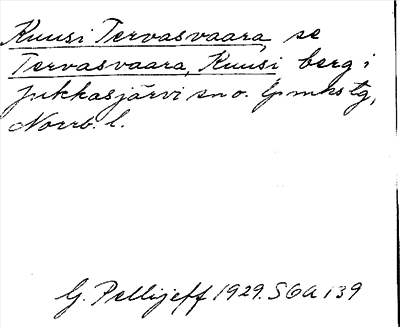 Kuusi Tervasvaara, se
Tervasvaara, Kuusi berg i
Jukkasjärvi sn o. lpmkstg,
Norrb. l.
G. Pellijeff 1929. SOA i 39